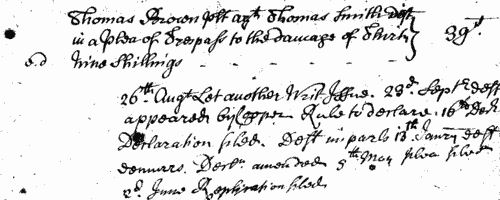 Thomas Brown plt agt Thomas Smith Deft
in a Plea of Trespass to the Damage of Thirty } 39s.
e.d Nine Shillings
26th. Augt Let another Writ Issue. 23d. Septr deft
appeared by Copper Rule to declare. 16th Decr.
Declaration filed. Deft imparls 13th Janry deft
demurrs. Decln amended 5th May plea filed
2d. June Replication filed